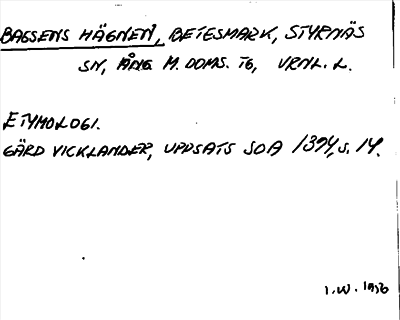 BAGSENS HÄGNEN, BETESMARK, STYRNÄS
SN, ÅNG. M. DOMS. TG, VRNL. L.
ETYMOLOGI.
GÄRD VICKLANDER, UPPSATS SOA 1394, S. 14.
I.W. 1976